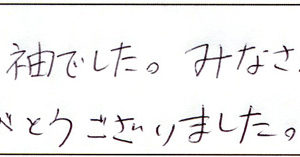 袖でした。みなさ
とうございました。